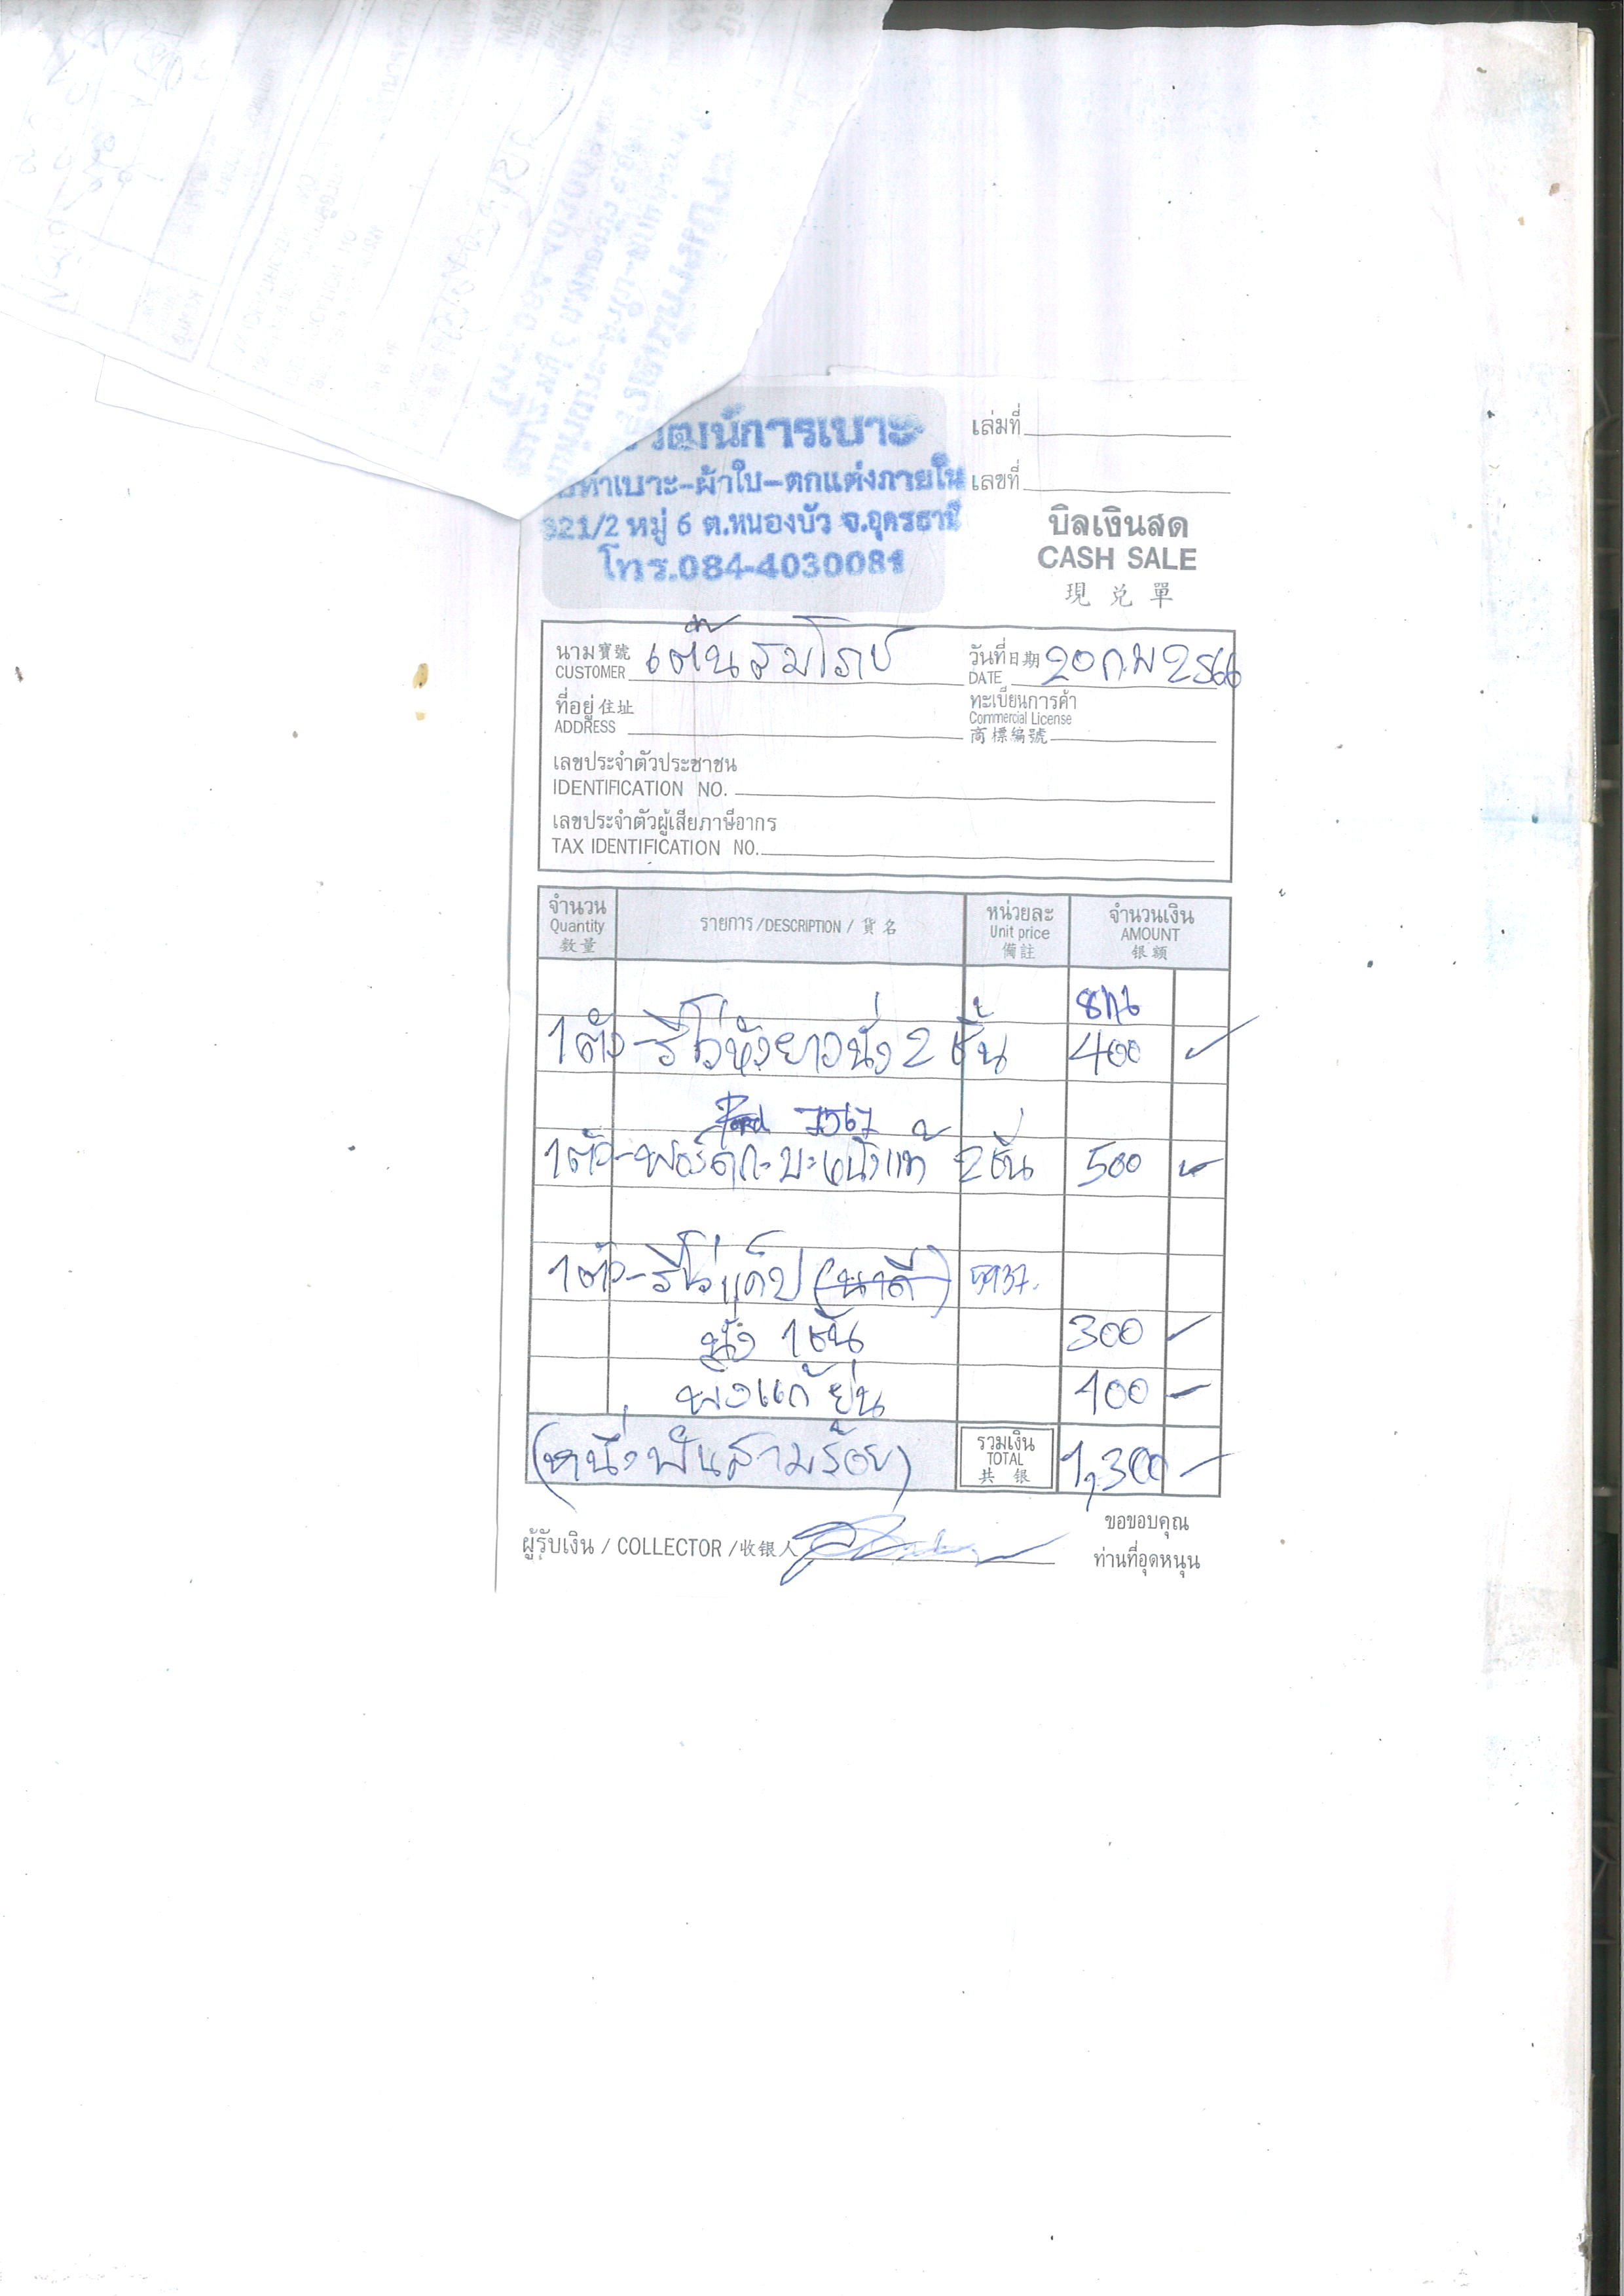 วัฒน์การเบาะ
เล่มที่
ทำเบาะ-ผ้าใบ-ตกแต่งภายใน
เลขที่
321/2 หมู่ 6 ต.หนองบัว จ.อุดรธานี
โทร.084-4030081
บิลเงินสด
CASH SALE
現兌單
นาม寶號 CUSTOMER
วันที่日期 DATE 20 ก.พ 2566
ที่อยู่住址 ADDRESS
ทะเบียนการค้า Commercial License 商標編號
เลขประจำตัวประชาชน
IDENTIFICATION NO.
เลขประจำตัวผู้เสียภาษีอากร
TAX IDENTIFICATION NO.
จำนวน Quantity 数量 รายการ/DESCRIPTION/貨名 หน่วยละ Unit price 備註 จำนวนเงิน AMOUNT 银额
1ตัว-รีโว่หัวยาวนั่ง 2 ชิ้น 400
Ford 7567
1ตัว-ฟอร์ดกะบะ 2 ชิ้น 500
1ตัว-รีโว่แค็ป (นาดี) 5937.
นั่ง 1 ชิ้น 300
พิงแก้ยุ่น 100
(หนึ่งพันสามร้อย) รวมเงิน TOTAL 共银 1,300
ผู้รับเงิน / COLLECTOR /收银人
ขอขอบคุณ
ท่านที่อุดหนุน